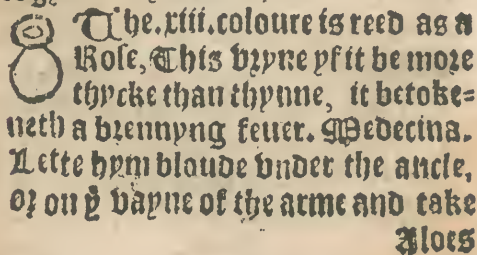 The.xiii.coloure is reed as a
Rose, This vryne yf it be more
thycke than thynne, it betoke=
neth a brennyng feuer. Medecina.
Lette hym bloude vnder the ancle,
or on yͤ vayne of the arme and take
Aloes